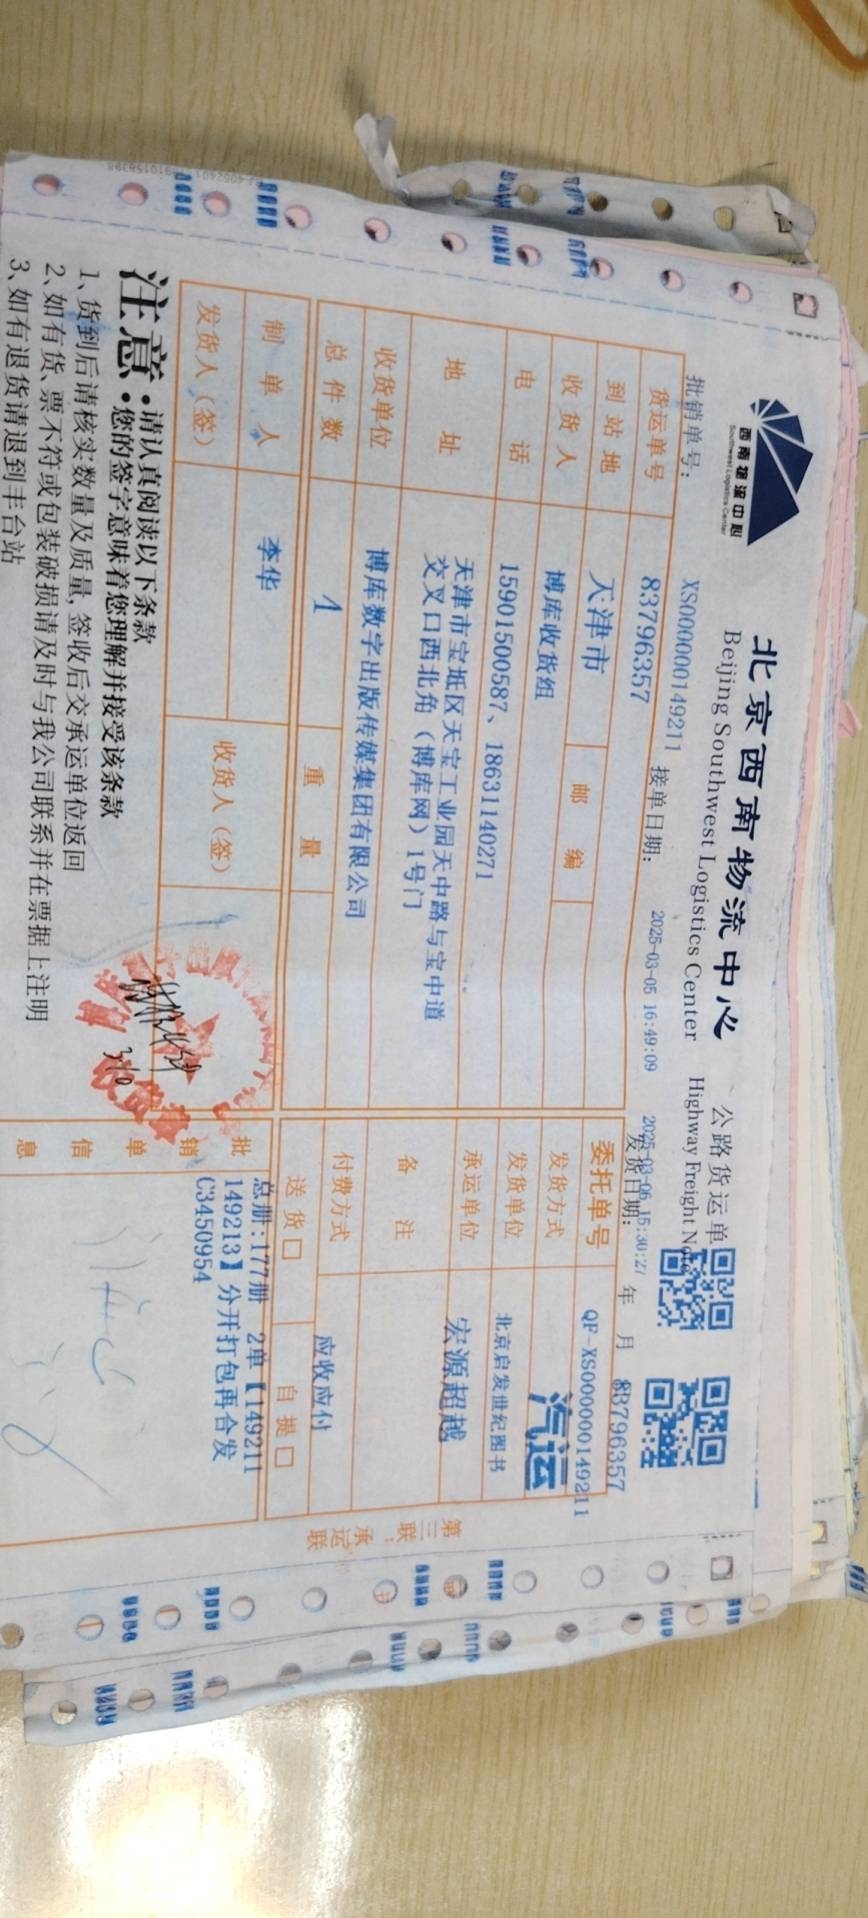 西南物流中心
Southwest Logistics Center
北京西南物流中心 公路货运单
Beijing Southwest Logistics Center Highway Freight Note
批销单号： XS000000149211 接单日期： 2025-03-05 16:49:09 发货日期： 2025-03-06 15:30:27 年 月
83796357
货运单号 83796357 委托单号 QF-XS000000149211
到站地 天津市 邮编 发货方式 汽运
收货人 博库收货组 发货单位 北京启发世纪图书
电话 15901500587、18631140271 承运单位 宏源超越
地址 天津市宝坻区天宝工业园天中路与宝中道
交叉口西北角（博库网）1号门
备注
收货单位 博库数字出版传媒集团有限公司 付费方式 应收应付
总件数 1 重量 送货□ 自提□
制单人 李华
发货人（签） 收货人（签）
批销单信息
总册:177册 2单【149211
149213】分开打包再合发
C3450954
第三联：承运联
注意
·请认真阅读以下条款
·您的签字意味着您理解并接受该条款
1、货到后请核实数量及质量,签收后交承运单位返回
2、如有货、票不符或包装破损请及时与我公司联系并在票据上注明
3、如有退货请退到丰台站
3/10